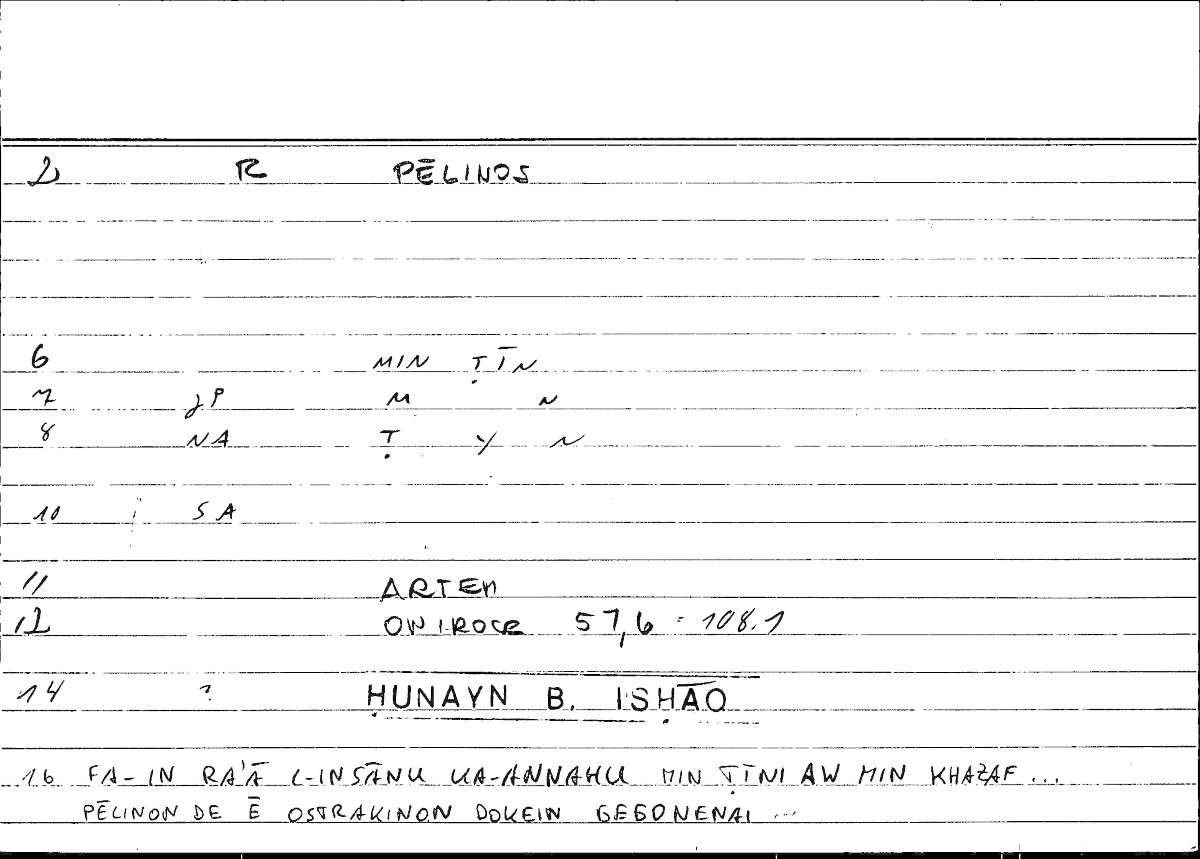 2 R PĒLINOS
6 MIN ṬĪN
7 JP M N
8 NA Ṭ Y N
10 SA
11 ARTEM
12 ONIROCR 57,6 = 108.1
14 ? ḤUNAYN B. ISḤĀQ
16 FA-IN RA'Ā L-INSĀNU KA-ANNAHU MIN ṬĪNI AW MIN KHAZAF ...
PĒLINON DE Ē OSTRAKINON DOKEIN GEGONENAI ...